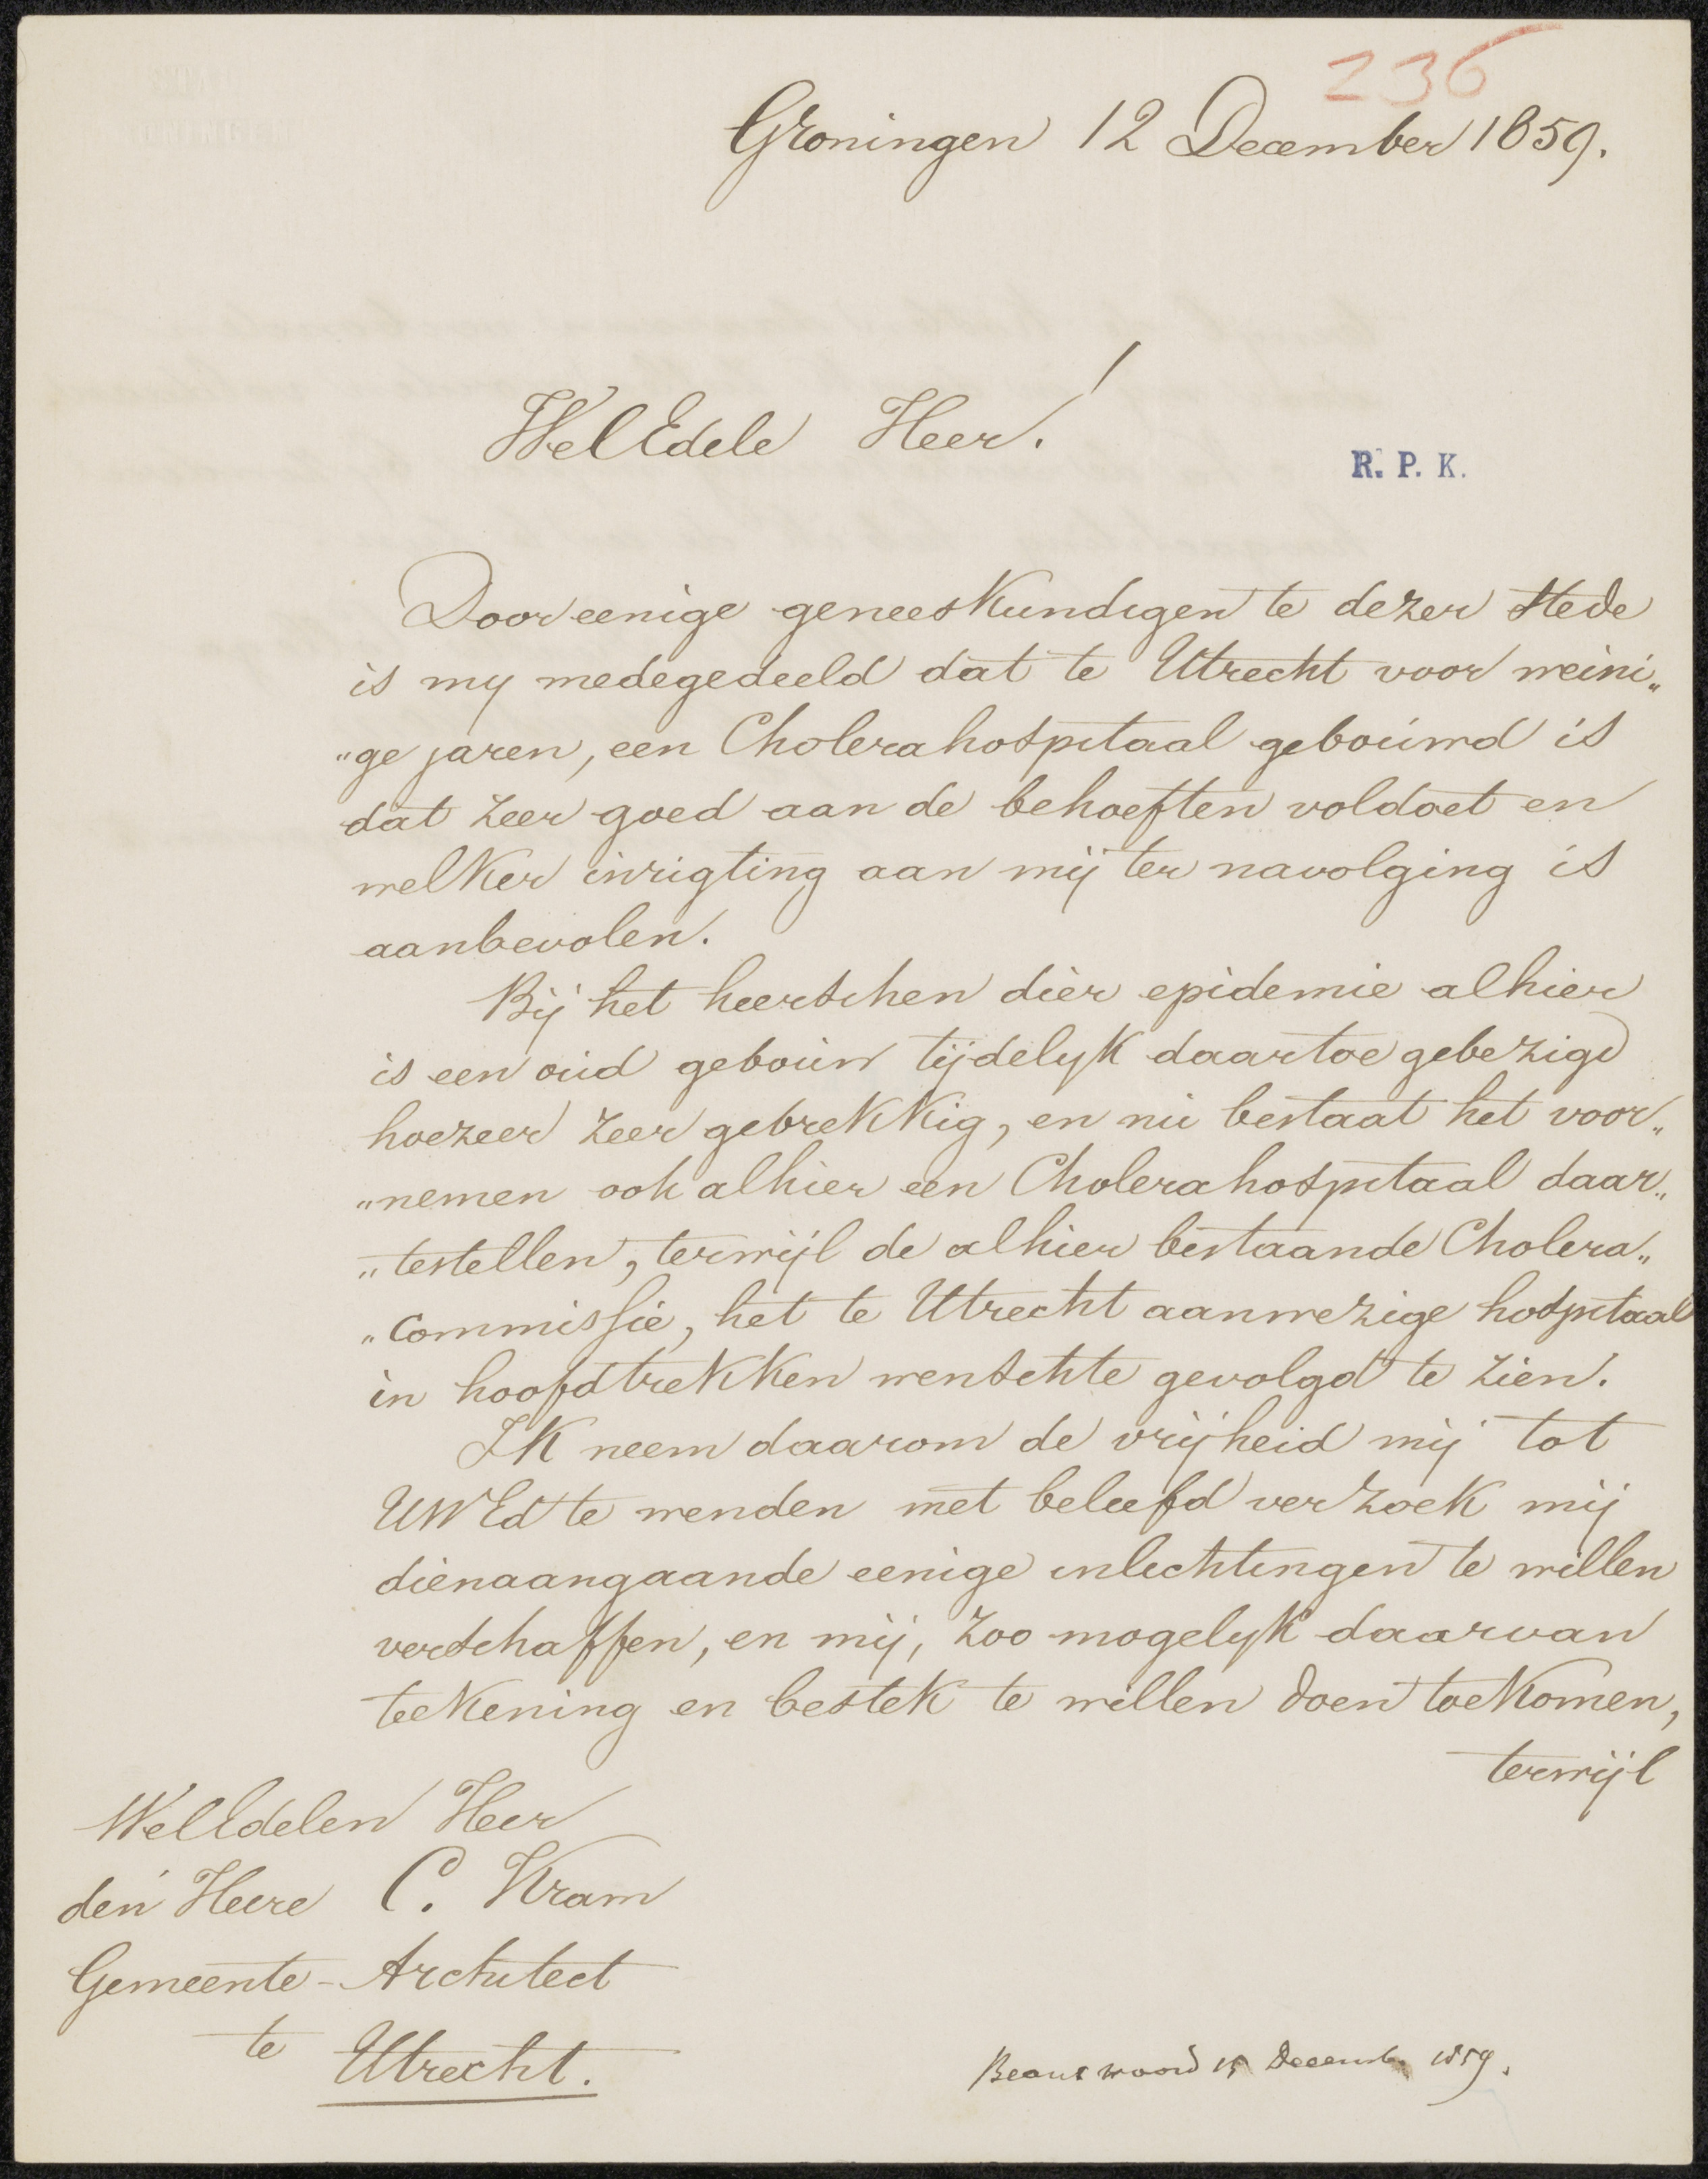 236
Groningen 12 December 1859.
WelEdele Heer!
R. P. K.
Door eenige geneeskundigen te dezer stede
is my medegedeeld dat te Utrecht voor weini„
„ge jaren, een Cholerahospitaal gebouwd is
dat zeer goed aan de behoeften voldoet en
welker inrigting aan mij ter navolging is
aanbevolen.
Bij het heerschen dier epidemie alhier
is een oud gebouw tijdelyk daartoe gebezigd
hoezeer zeer gebrekkig, en nu bestaat het voor„
„nemen ook alhier een Cholerahospitaal daar„
„testellen, terwijl de alhier bestaande Cholera„
„commissie, het te Utrecht aanwezige hospitaal
in hoofdtrekken wenschte gevolgd te zien.
Ik neem daarom de vrijheid mij tot
UWEd te wenden met beleefd verzoek mij
dienaangaande eenige inlichtingen te willen
verschaffen, en mij, zoo mogelyk daarvan
teekening en bestek te willen doen toekomen,
terwijl
WelEdelen Heer
den Heere C. Kram
Gemeente-Architect
te Utrecht.
Beantwoord 15 Decemb. 1859.